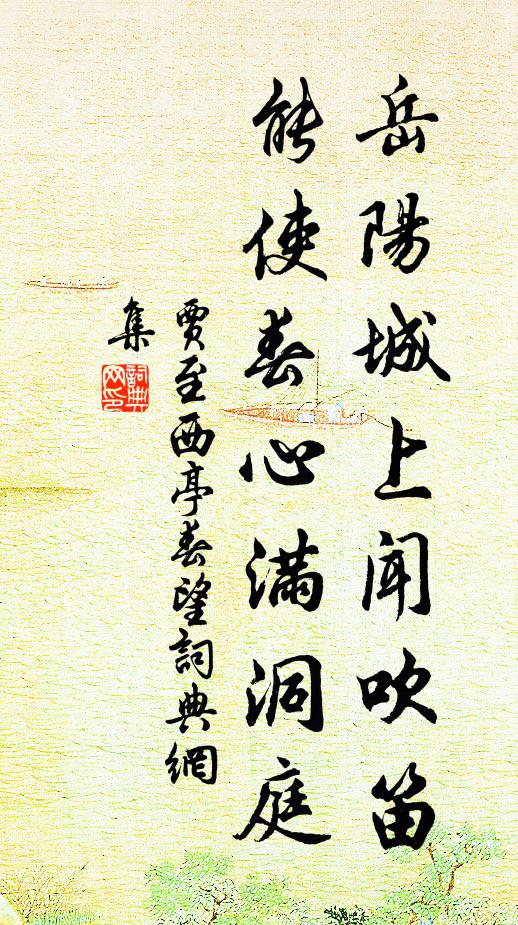 岳陽城上聞吹笛
能使春心滿洞庭
賈至西亭春望詞典網
集
詞典
网印